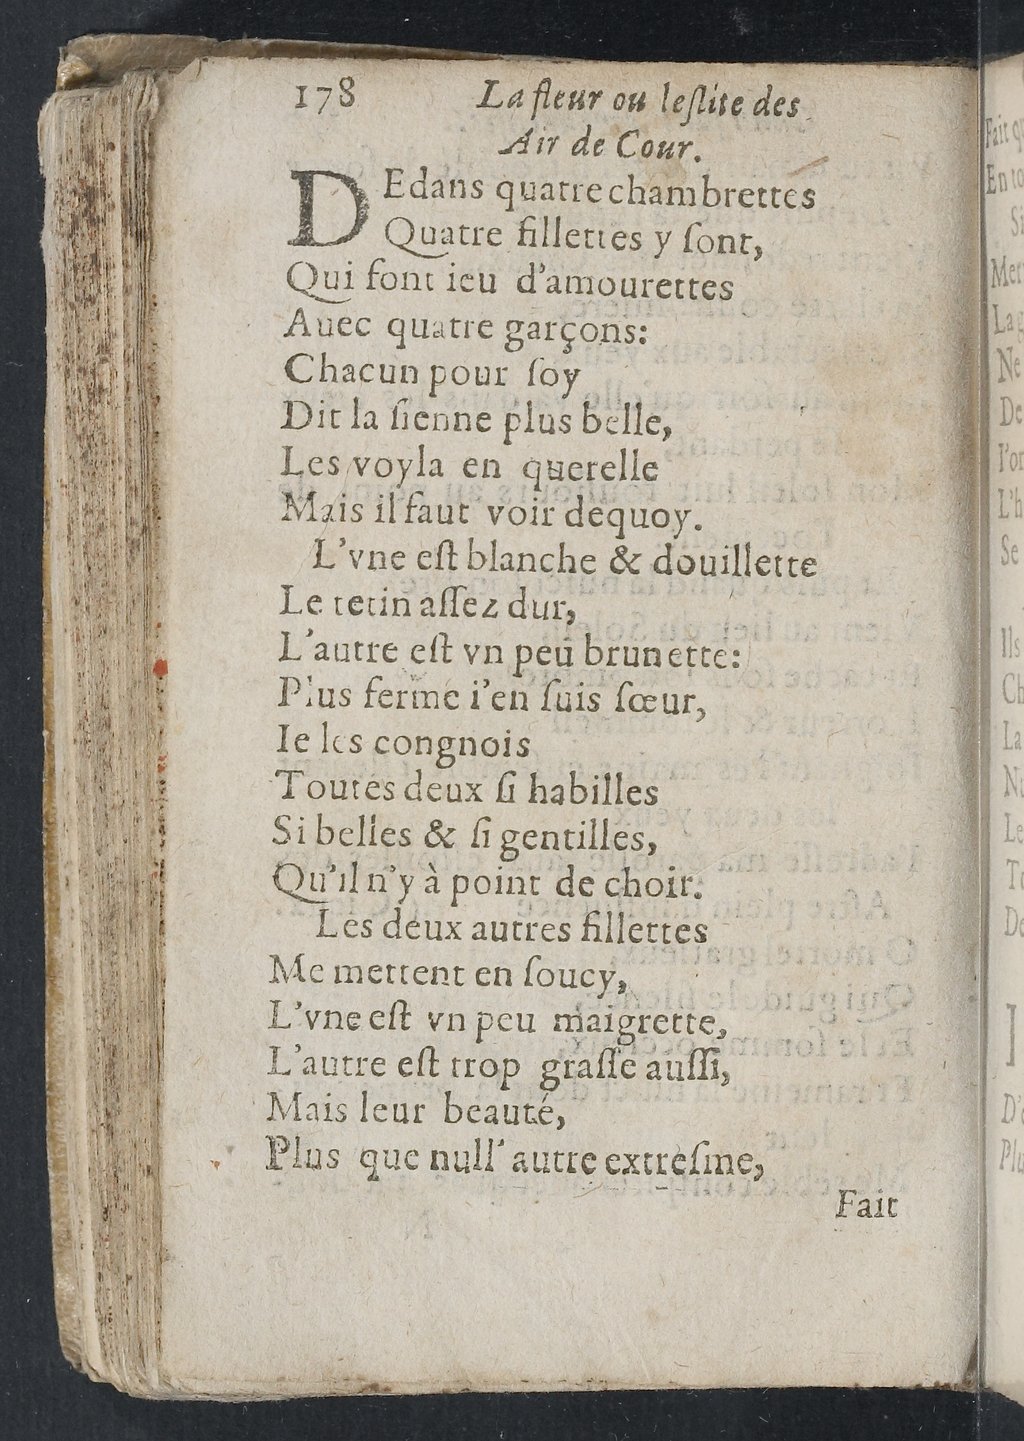 178 La fleur ou leſlite des
Air de Cour.
DEdans quatre chambrettes
Quatre fillettes y ſont,
Qui font ieu d'amourettes
Auec quatre garçons:
Chacun pour ſoy
Dit la ſienne plus belle,
Les voyla en querelle
Mais il faut voir dequoy.
L'vne eſt blanche & douillette
Le tetin aſſez dur,
L'autre eſt vn peu brunette:
Plus ferme i'en ſuis ſœur,
Ie les congnois
Toutes deux ſi habilles
Si belles & ſi gentilles,
Qu'il n'y à point de choir.
Les deux autres fillettes
Me mettent en ſoucy,
L'vne eſt vn peu maigrette,
L'autre eſt trop graſſe auſſi,
Mais leur beauté,
Plus que null' autre extreſme,
Fait